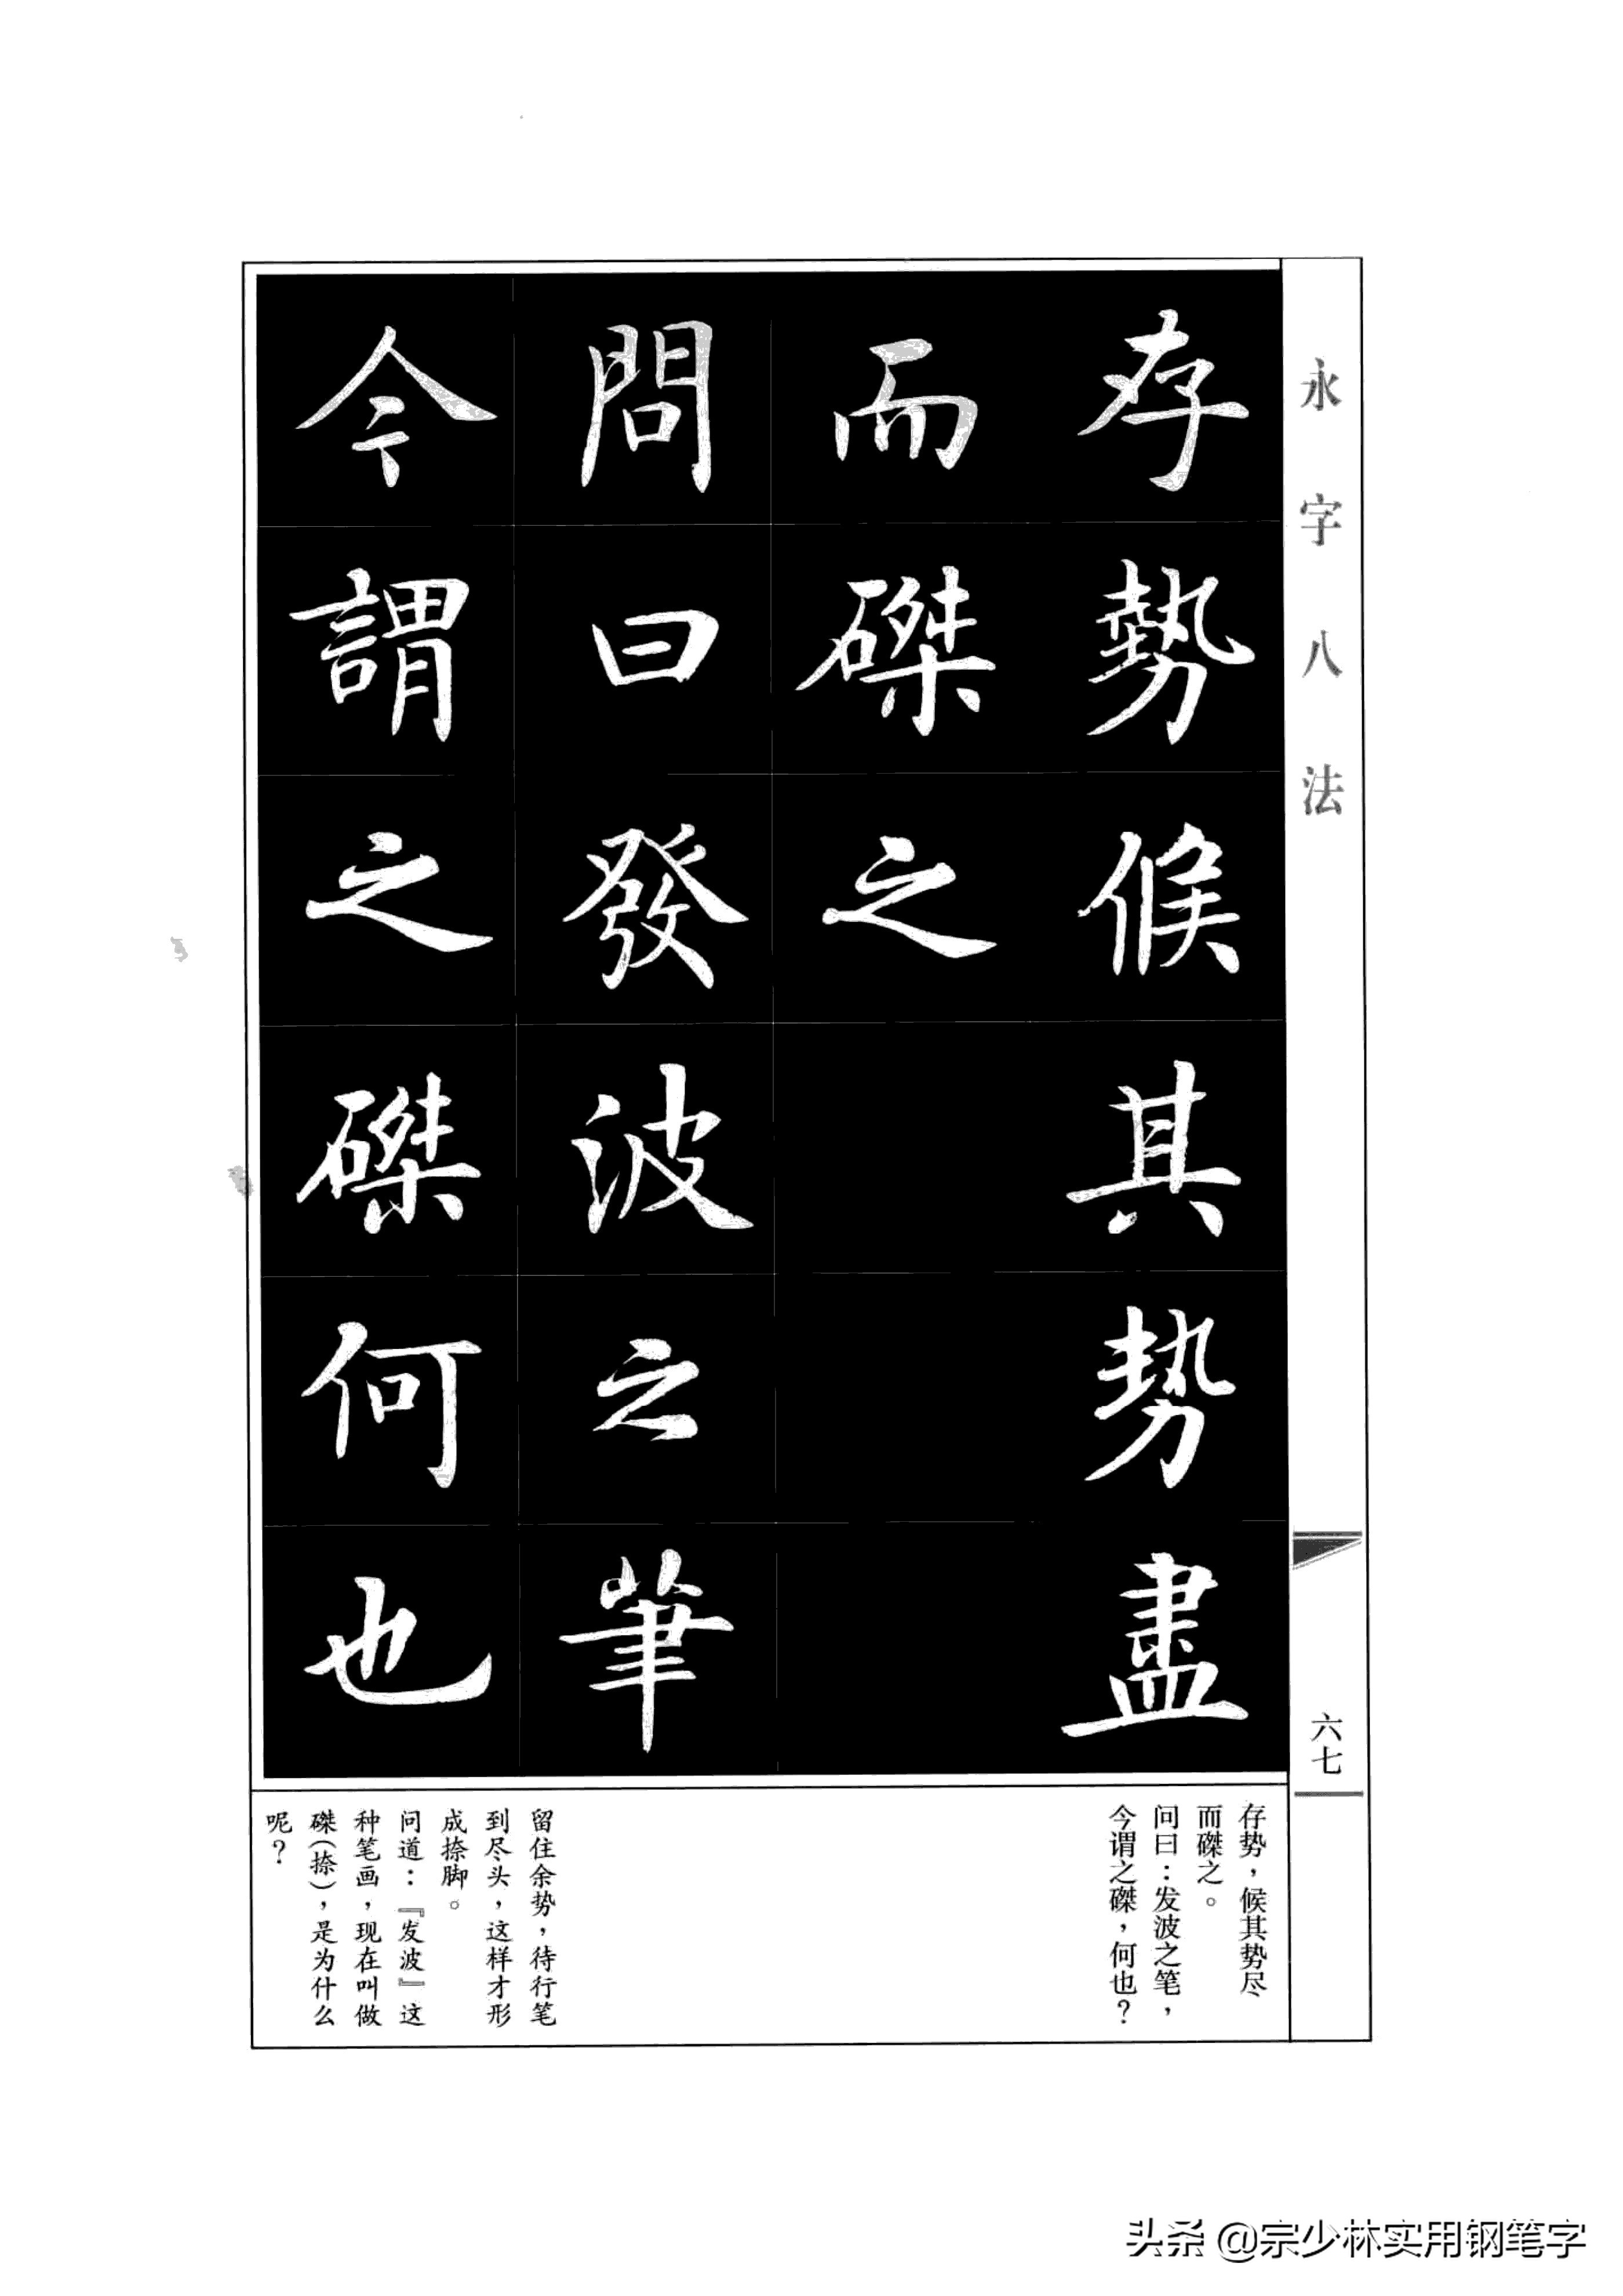 永字八法
六七
存勢候其势盡
而磔之
問曰發波之筆
今謂之磔何也
存势，候其势尽
而磔之。
问曰：发波之笔，
今谓之磔，何也？
留住余势，待行笔
到尽头，这样才形
成捺脚。
问道：『发波』这
种笔画，现在叫做
磔（捺），是为什么
呢？
头条 @宗少林实用钢笔字